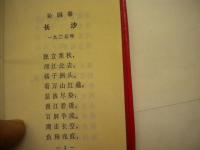 沁园春
长沙
一九二五年
独立寒秋，
湘江北去，
橘子洲头。
看万山红遍，
层林尽染；
漫江碧透，
百舸争流。
鹰击长空，
鱼翔浅底，